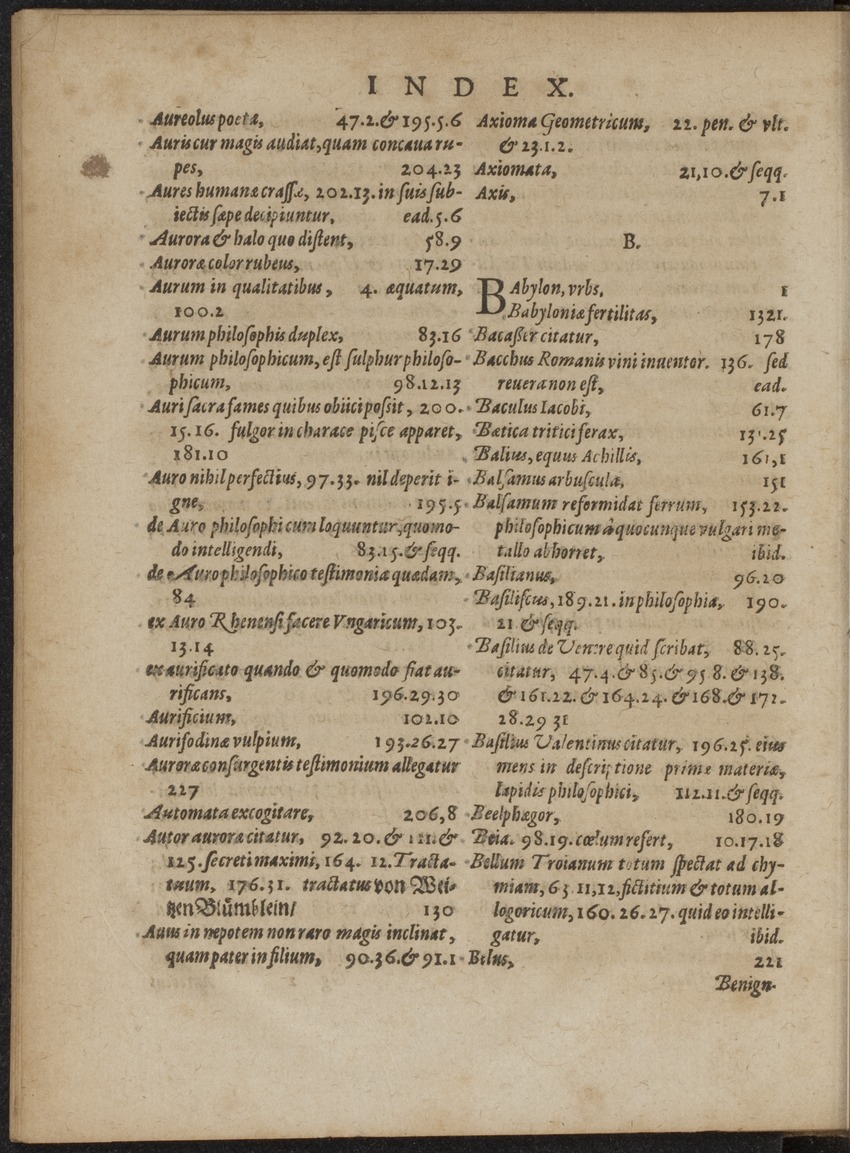 INDEX.
Aureolus poeta, 47.2.& 195.5.6
Auris cur magis audiat, quam concaua ru-
pes, 204.23
Aures humanæ crassæ, 202.13. in suis sub-
iectis sæpe decipiuntur, ead. 5.6
Aurora & halo quo distent, 58.9
Auroræ color rubeus, 17.29
Aurum in qualitatibus, 4. æquatum,
100.2
Aurum philosophis duplex, 83.16
Aurum philosophicum, est sulphur philoso-
phicum, 98.12.13
Auri sacra fames quibus obiici possit, 200.
15.16. fulgor in charace pisce apparet,
181.10
Auro nihil perfectius, 97.33. nil deperit i-
gne, 195.5
de Auro philosophi cum loquuntur, quomo-
do intelligendi, 83.15.& seqq.
de Auro philosophico testimonia quædam,
84
ex Auro Rhenensi facere Vngaricum, 103.
13.14
ex aurificato quando & quomodo fiat au-
rificans, 196.29.30
Aurificium, 102.10
Aurifodinæ vulpium, 193.26.27
Auroræ consurgentis testimonium allegatur
227
Automata excogitare, 206,8
Autor auroræ citatur, 92.20.& 121.&
125. secreti maximi, 164. 12. Tracta-
tuum, 176.31. tractatus von Wei-
tzen Blůmblein/ 130
Auus in nepotem non raro magis inclinat,
quam pater in filium, 90.36.& 91.1
Axioma Geometricum, 22. pen. & vlt.
& 23.1.2.
Axiomata, 21,10.& seqq.
Axis, 7.1
B.
BAbylon, vrbs, 1
Babyloniæ fertilitas, 1321.
Bacasser citatur, 178
Bacchus Romanis vini inuentor. 136. sed
reuera non est, ead.
Baculus Iacobi, 61.7
Bætica tritici ferax, 25
Balius, equus Achillis, 161,1
Balsamus arbuscula, 151
Balsamum reformidat ferrum, 153.22.
philosophicum à quocunque vulgari me-
tallo abhorret, ibid.
Basilianus, 96.20
Basiliscus, 189.21. in philosophia, 190.
21 & seqq.
Basilius de Ventre quid scribat, 88.25.
citatur, 47.4.& 85.& 95 8. & 138.
& 161.22. & 164.24. & 168.& 172.
28.29 31
Basilius Valentinus citatur, 196.25. eius
mens in descriptione primæ materiæ,
lapidis philosophici, 112.11.& seqq.
Beelphægor, 180.19
Beia. 98.19. cœlum refert, 10.17.18
Bellum Troianum totum spectat ad chy-
miam, 63 11,12, fictitium & totum al-
logoricum, 160.26.27. quid eo intelli-
gatur, ibid.
Belus, 221
Benign-